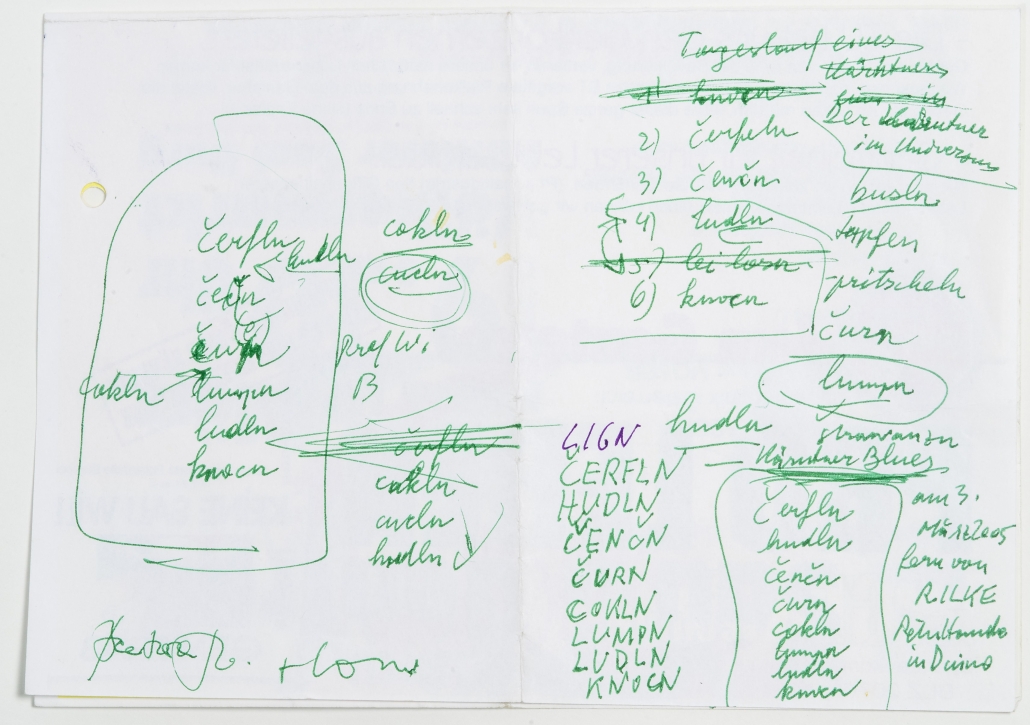 čerfln
hudln
čenčn
čurn
cokln
lumpn
ludln
knocn
cokln
cucln
Prof Wi
B
čerfln
cokln
cucln
hudln
+ Homi
Tageslauf eines
Kärntners
eines in
1) knocn
Der Kärntner
im Universum
2) čerfeln
3) čenčn
4) ludln
5) lei losn
6) knocn
busln
tapfen
pritscheln
čurn
lumpn
hudln
stravanzn
Kärntner Blues
LIGN
ČERFLN
HUDLN
ČENČN
ČURN
COKLN
LUMPN
LUDLN
KNOCN
čerfln
hudln
čenčn
čurn
cokln
lumpn
ludln
knocn
am 3.
März 2005
fern von
RILKE
in Duino